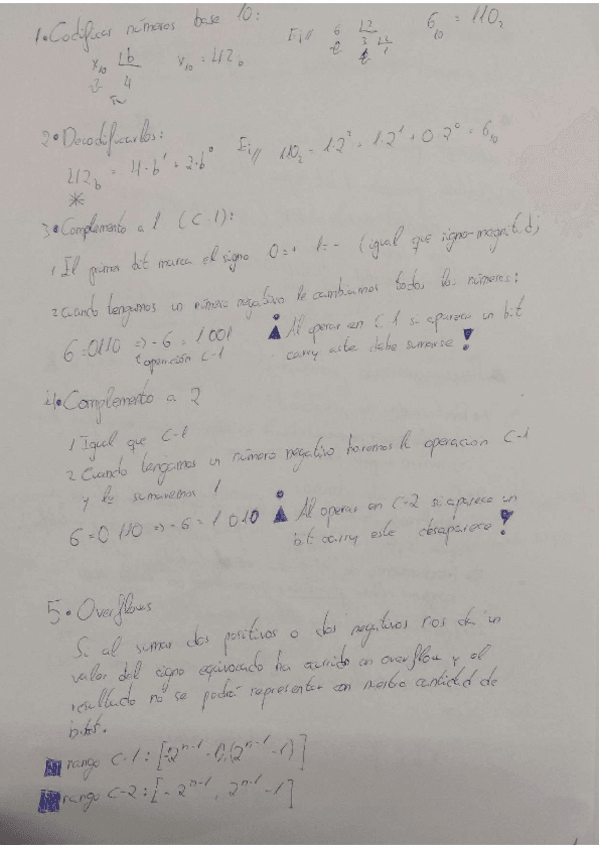 1. Codificar números base 10:
x₁₀ |b    x₁₀ = 412b    Ej//    6 |2    6₁₀ = 110₂
2 4    3 |2
1
2. Decodificarlos:
412b = 4·b¹ + 2·b⁰    Ej//    110₂ = 1·2² + 1·2¹ + 0·2⁰ = 6₁₀
*
3. Complemento a 1 (C-1):
1 El primer bit marca el signo 0=+ 1=- (igual que signo-magnitud)
2 Cuando tengamos un número negativo le cambiamos todos los números:
6=0110 => -6 = 1001    Al operar en C-1 si aparece un bit
operación C-1    carry este debe sumarse!
4. Complemento a 2
1 Igual que C-1
2 Cuando tengamos un número negativo haremos la operación C-1
y le sumaremos 1
6=0110 => -6 = 1010    Al operar en C-2 si aparece un
bit carry este desaparece!
5. Overflows
Si al sumar dos positivos o dos negativos nos da un
valor del signo equivocado ha ocurrido un overflow y el
resultado no se podrá representar con nuestra cantidad de
bits.
rango C-1: [-2ⁿ⁻¹-1),(2ⁿ⁻¹-1)]
rango C-2: [-2ⁿ⁻¹, 2ⁿ⁻¹-1]